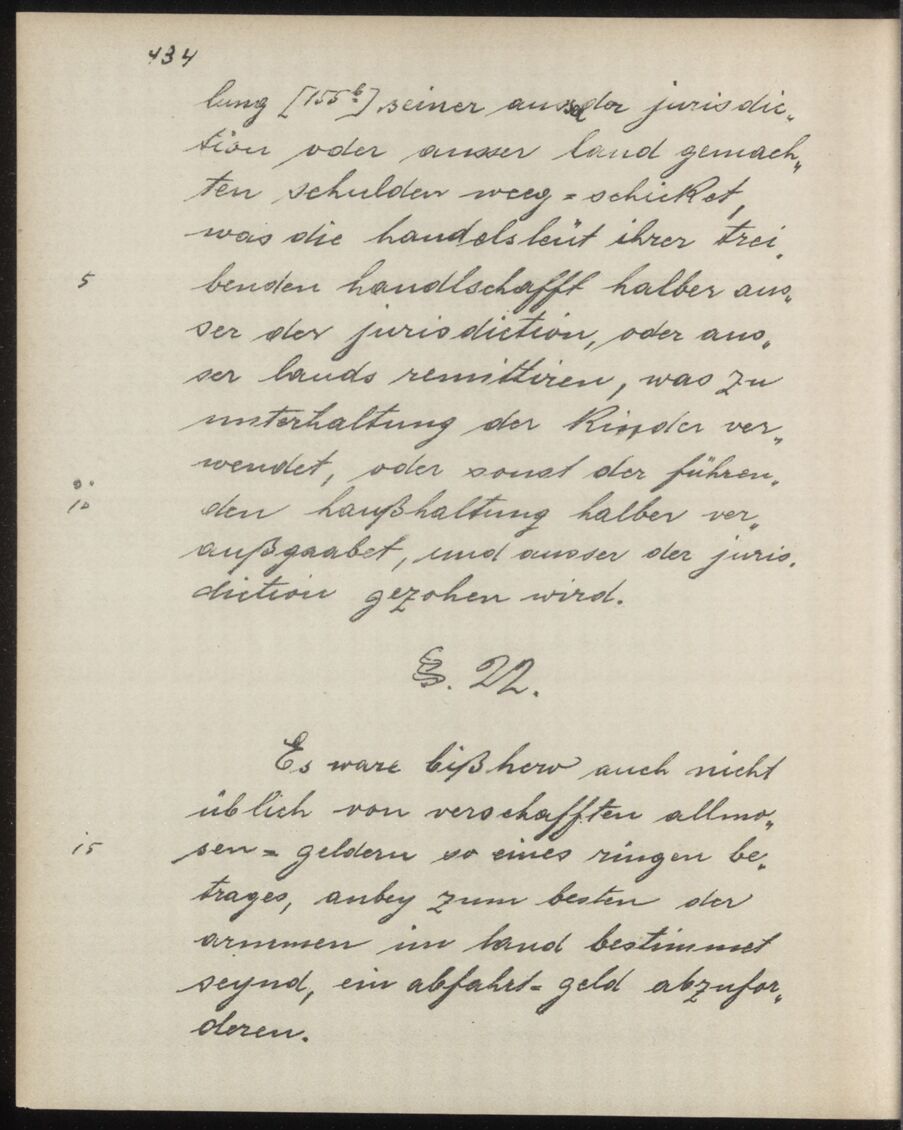 434
lung [155b] seiner ausser der jurisdic„
tion oder ausser land gemach„
ten schulden weeg=schicket,
was die handelsleüt ihrer trei„
5 benden handlschafft halber aus„
ser der jurisdiction, oder aus„
ser lands remittiren, was zu
unterhaltung der Kinder ver„
wendet, oder sonst der führen„
10 den haußhaltung halber ver„
außgaabet, und ausser der juris„
diction gezohen wird.
§. 22.
Es ware bißhero auch nicht
üblich von verschafften allmo„
15 sen=geldern so eines ringen be„
trages, anbey zum besten der
armmen im land bestimmet
seynd, ein abfahrt=geld abzufor„
deren.